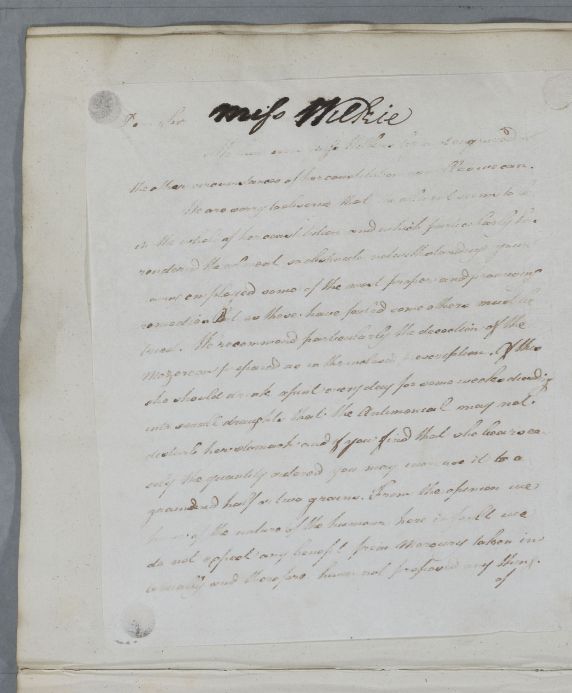 Dear Sir Miss Wilkie
the other circumstances of her constitution
We are sorry to observe that
in the whole of her constitution and which particularly has
rendered the ailment so obstinate notwithstanding your
employed some of the most proper and promising
remedies But as these have failed some others must be
tried. We recommend particularly the decoction of the
Mezereon prepared as in the inclosed prescription. Of this
she should drink a pint every day for some weeks dividing
into small draughts that the Antimonial may not
disturb her stomach and if you find that she bears ea-
sily the quantity ordered you may increase it to a
grain and half or two grains. From the opinion we
have of the nature of the humour here in fault we
do not expect any benefit from Mercury taken in-
ternally and therefore have not proposed any thing
of